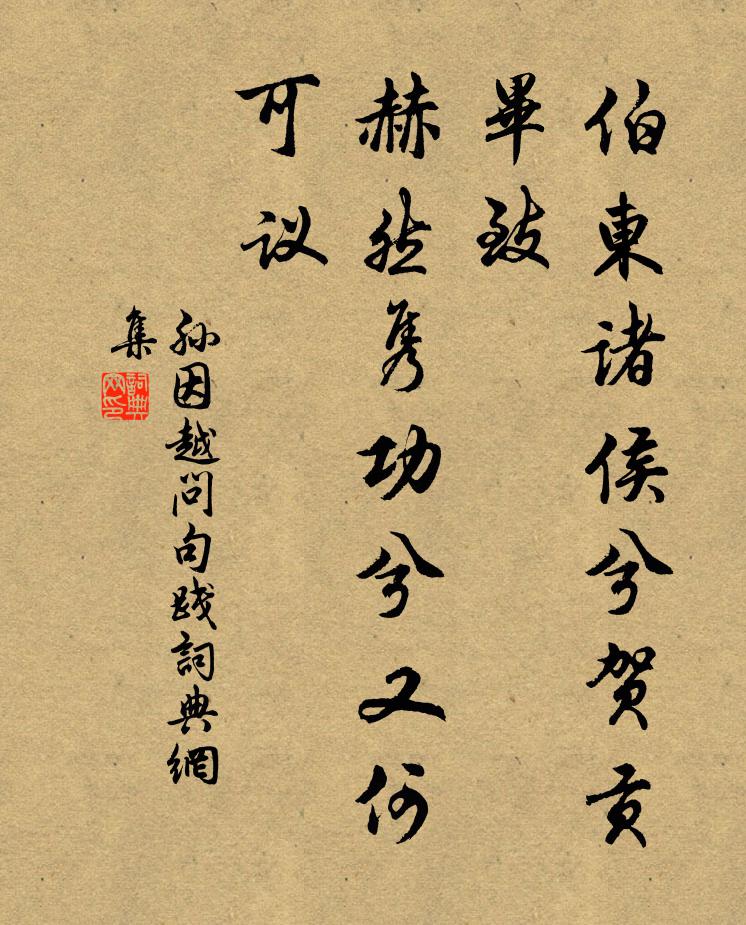 伯東諸侯兮贺贡
畢致
赫然隽功兮又何
可议
孙因越问句践詞典網
集
詞典網印